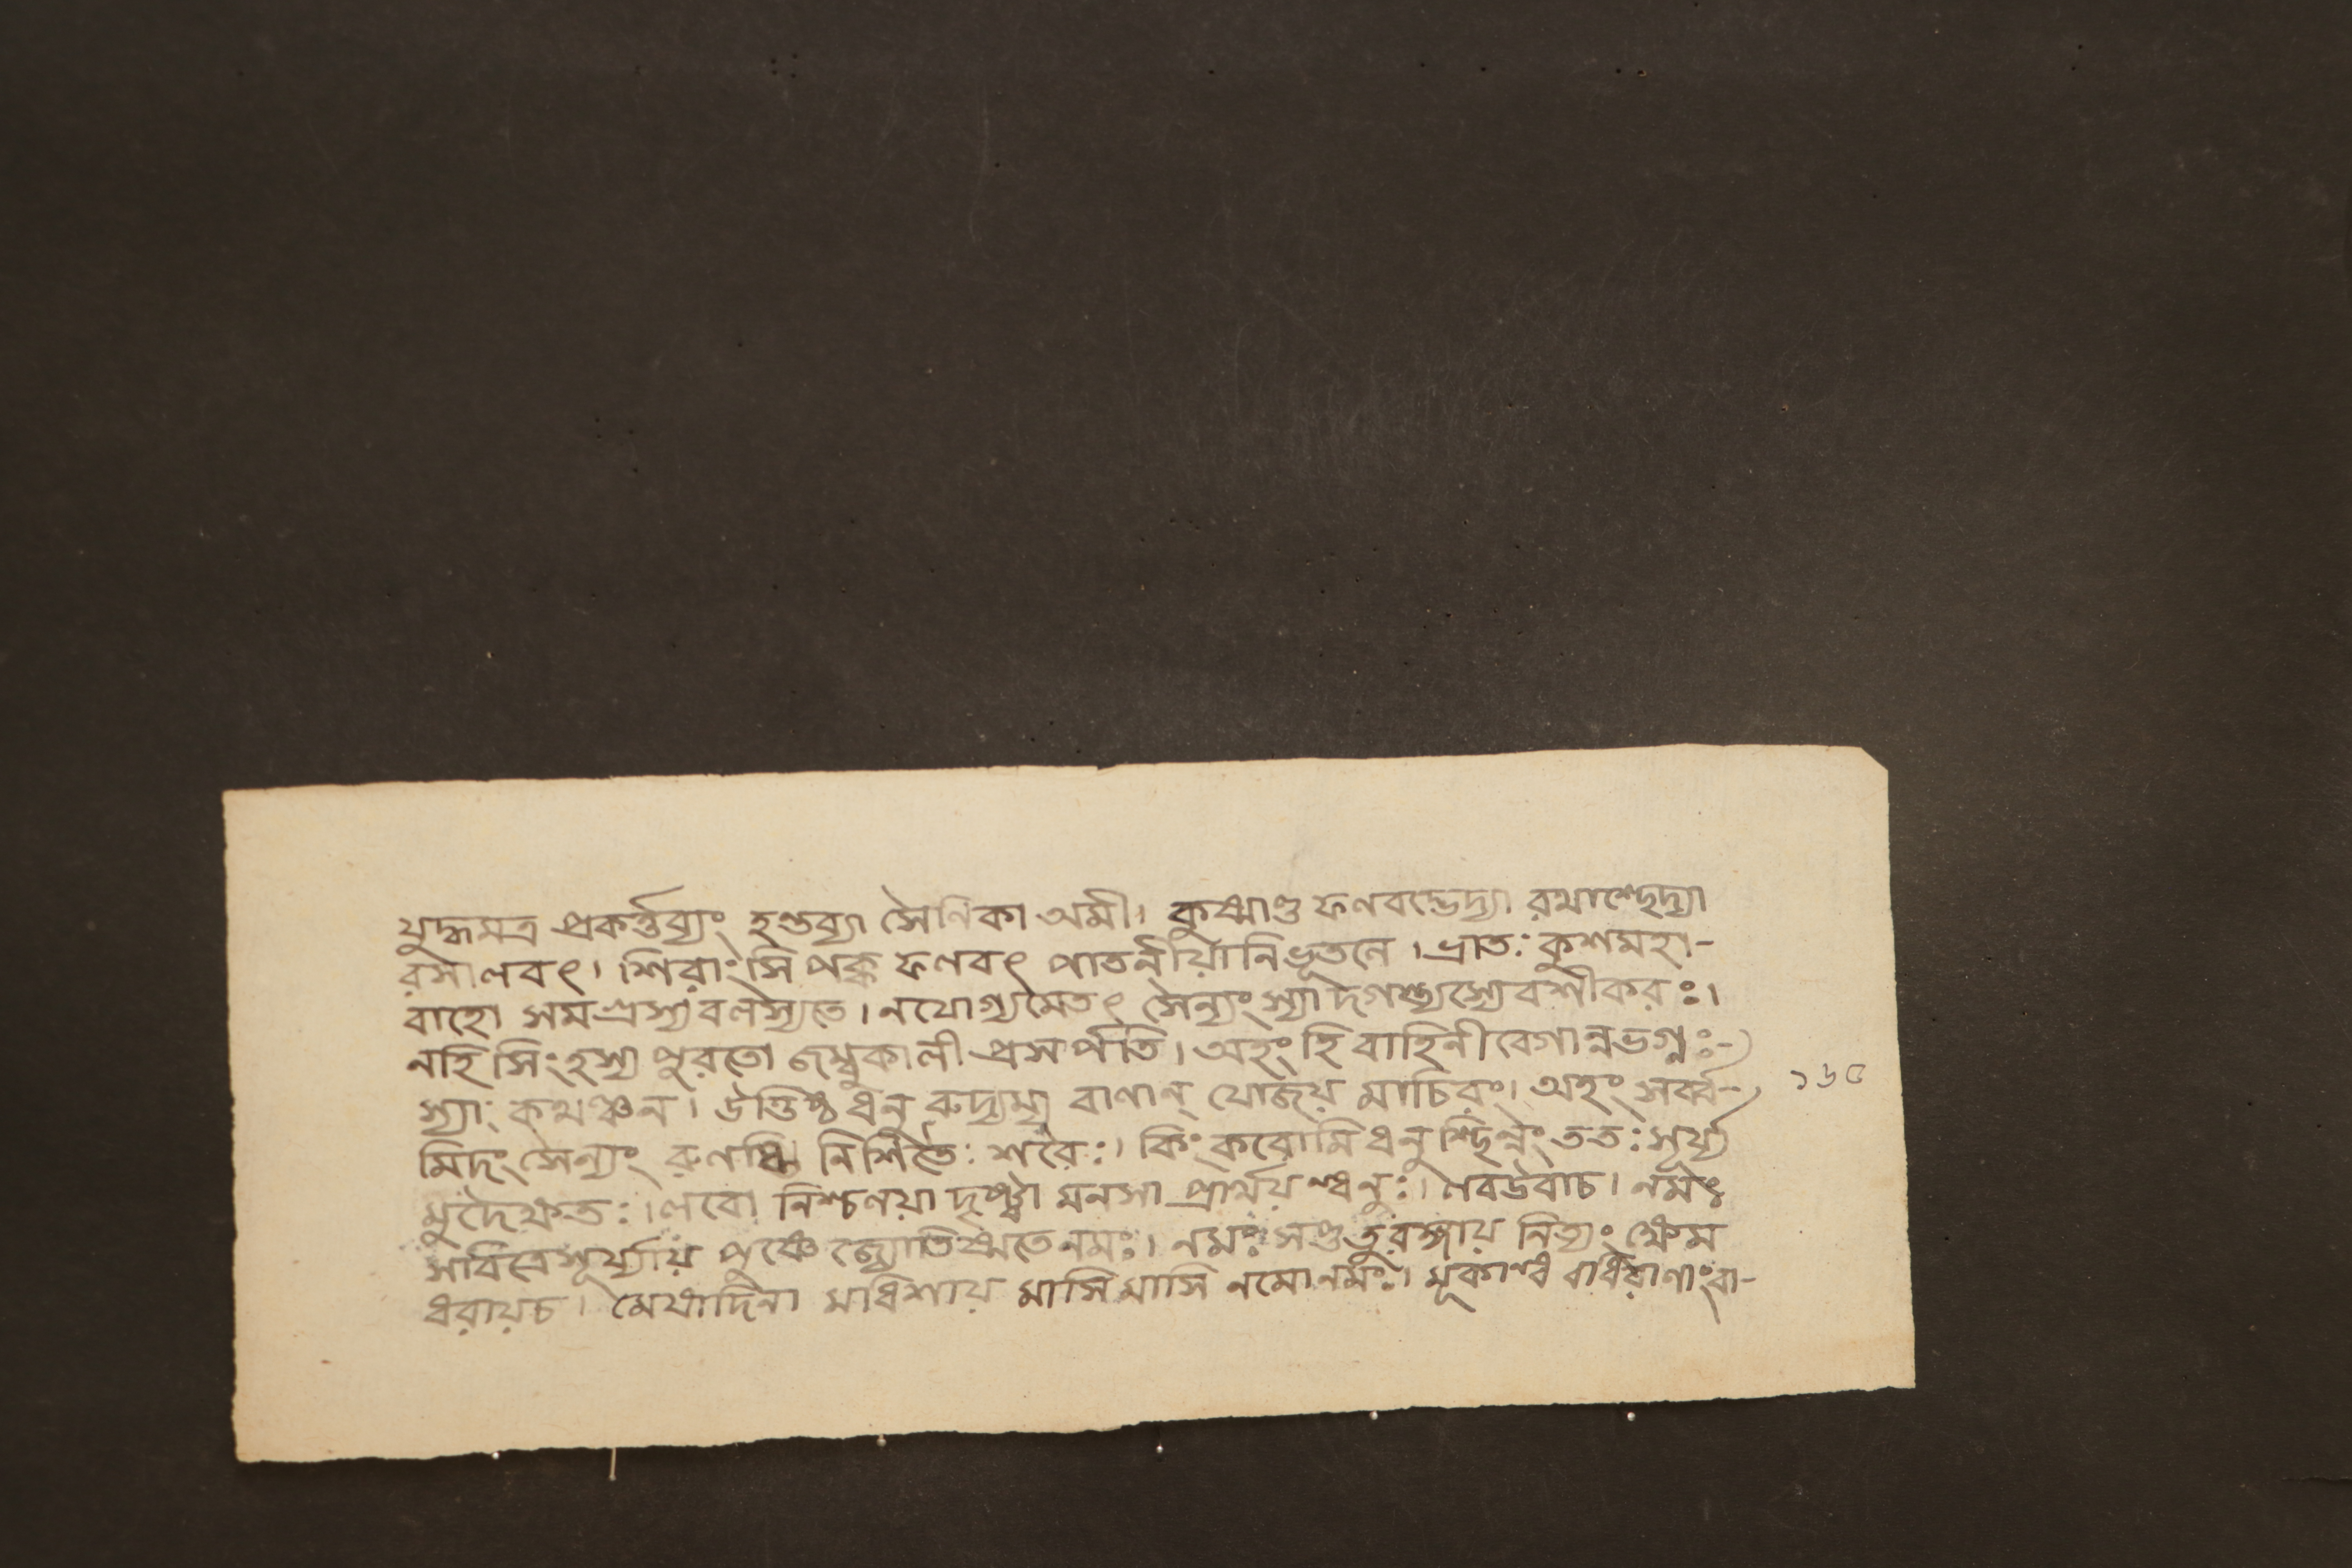 যুদ্ধমত্র প্রকর্ত্তব্যং হন্তব্যা সৈনিকা অমী। কুষ্মাণ্ড ফলবদ্ভেদ্যা রথাশ্ছেদ্যা
রসালবৎ। শিরাংসি পক্ব ফলবৎ পাতনীয়ানি ভূতলে। ভ্রাতঃ কুশমহা-
বাহো সমগ্রস্য বলস্যতে। নযোগ্যমেতৎ সৈন্যং স্যাদগস্ত্যস্যেব শীকরঃ।
নহি সিংহস্য পুরতো জম্বুকালী প্রসর্পতি। অহং হি বাহিনীবেগান্নভগ্নঃ-
স্যাং কথঞ্চন। উত্তিষ্ঠ ধনু রুদ্যম্য বাণান্ যোজয় মাচিরং। অহং সর্ব্ব-
মিদং সৈন্যং রুণধ্মি নিশিতৈঃ শরৈঃ। কিং করোমি ধনুশ্ছিন্নং ততঃ সূর্য্য
মুদৈক্ষতঃ। লবো নিশ্চলয়া দৃষ্ট্যা মনসা প্রার্থয়ন্ধনুঃ। লবউবাচ। নমঃ
সবিত্রেসূর্য্যায় পুষ্ণে জ্যোতিষ্মতেনমঃ। নমঃ সপ্ততুরঙ্গায় নিত্যং ক্ষেম
ধরায়চ। মেষাদিনা মধিশায় মাসি মাসি নমোনমঃ। মূকান্ধ বধিরাণাং বা-
১৬৫